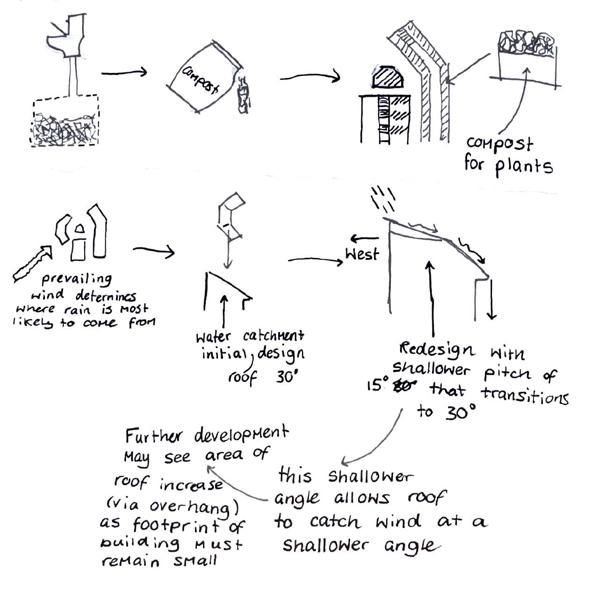 compost
compost
for plants
prevailing
wind deternings
where rain is most
likely to come from
water catchment
initial, design
roof 30°
West
Redesign with
shallower pitch of
15° that transitions
to 30°
Further development
may see area of
roof increase
(via overhang)
as footprint of
building must
remain small
this shallower
angle allows roof
to catch wind at a
shallower angle